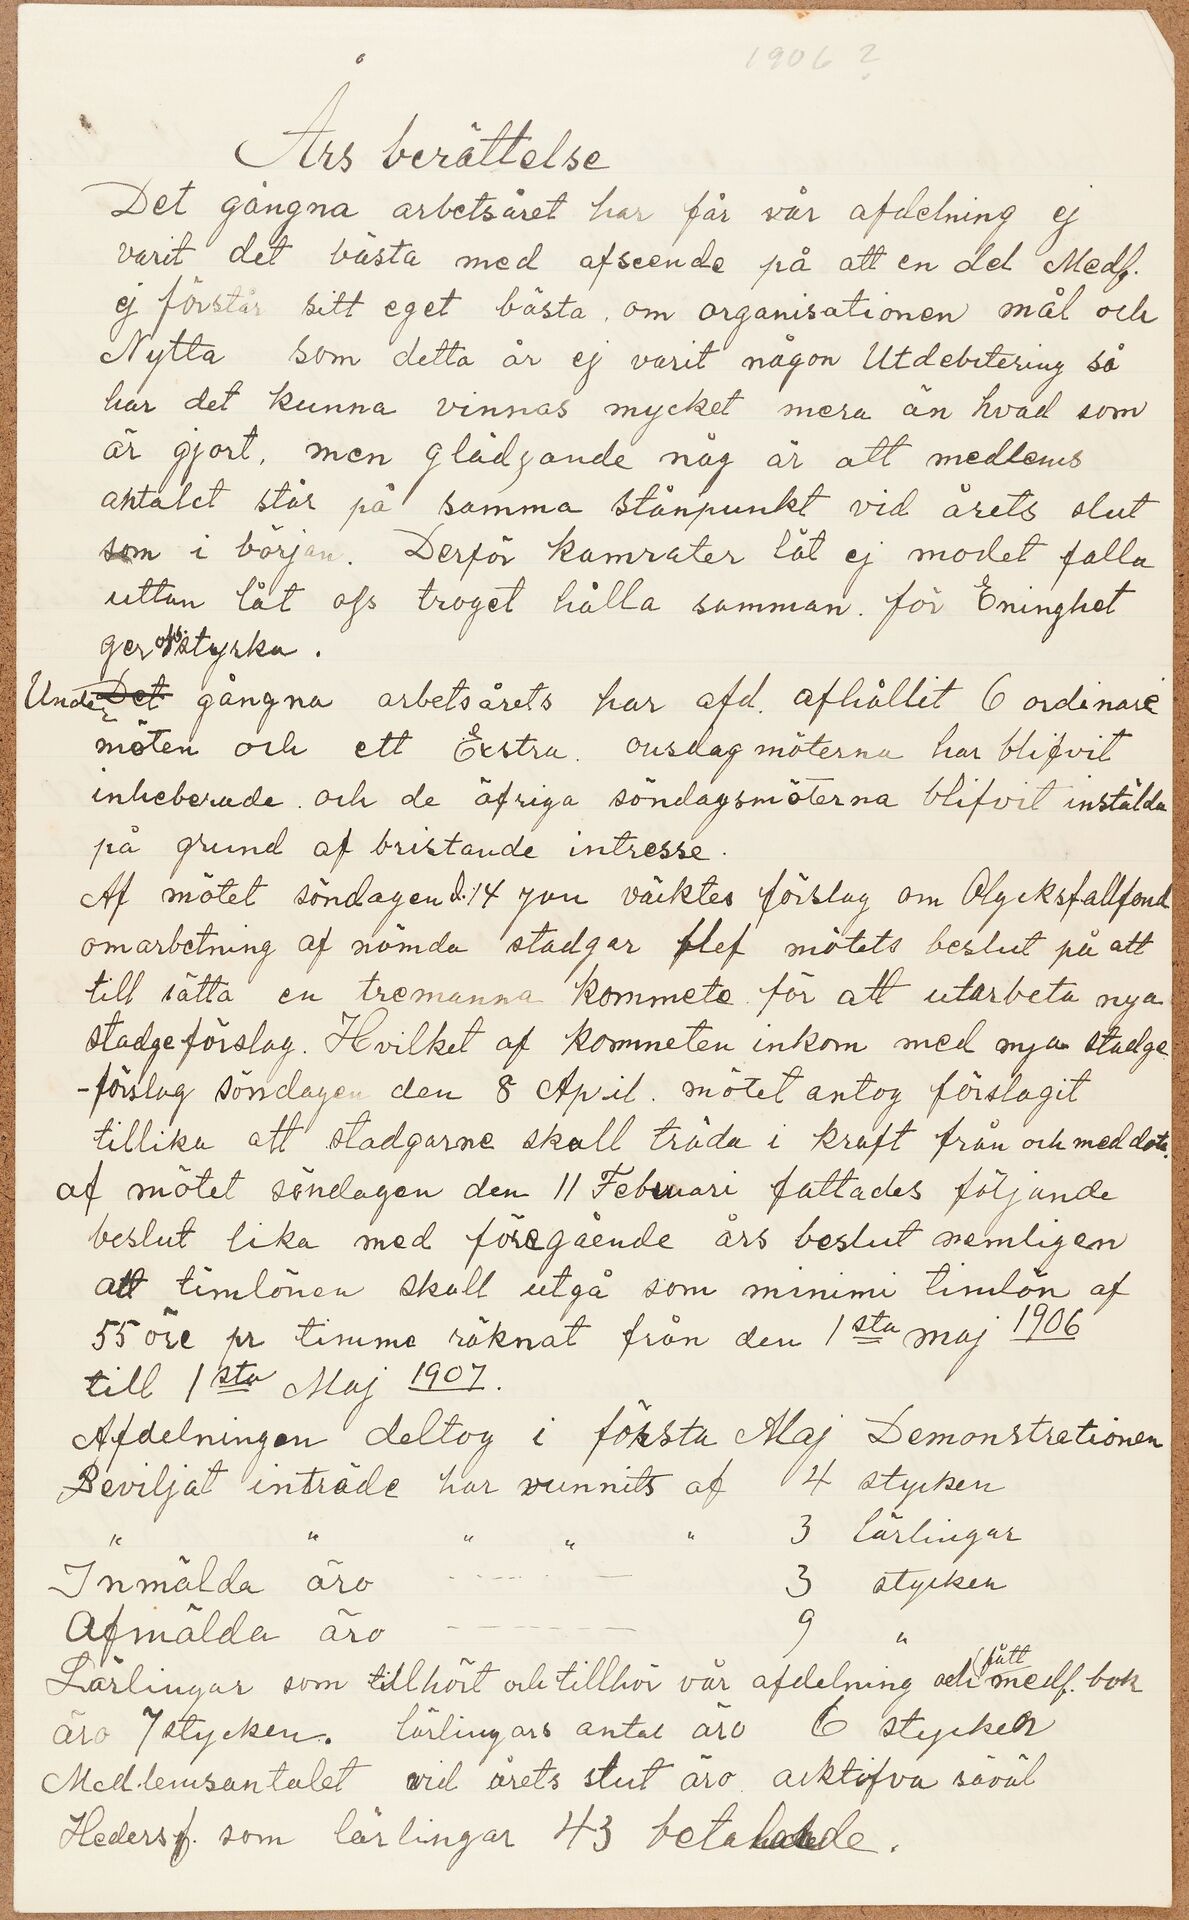 1906 ?
Års berättelse
Det gångna arbetsåret har får vår afdelning ej
varit det bästa med afseende på att en del Medl.
ej förstår sitt eget bästa, om organisationen mål och
Nytta som detta år ej varit någon Utdebitering så
har det kunna vinnas mycket mera än hvad som
är gjort, men glädjande någ är att medlems
antalet står på samma stånpunkt vid årets slut
som i början. Derför kamrater låt ej modet falla
uttan låt oss troget hålla samman. för Eninghet
ger oss styrka.
Under Det gångna arbetsårets har afd. afhållit 6 ordinarie
möten och ett Exstra. onsdag möterna har blifvit
inheberade och de äfriga söndagsmöterna blifvit instälda
på grund af bristande intresse.
Af mötet söndagen d. 14 jan väcktes förslag om Olycksfallfond
omarbetning af nämda stadgar blef mötets beslut på att
till sätta en tremanna kommete för att utarbeta nya
stadgeförslag. Hvilket af kommeten inkom med nya stadge
-förslag söndagen den 8 April. mötet antog förslagit
tillika att stadgarne skall träda i kraft från och med dato.
af mötet söndagen den 11 Februari fattades följande
beslut lika med föregående års beslut nemligen
att timlönen skall utgå som minimi timlön af
55 öre pr timme räknat från den 1sta maj 1906
till 1sta Maj 1907.
Afdelningen deltog i första Maj Demonstretionen
Beviljat inträde har vunnits af 4 stycken
" " " " " 3 lärlingar
Inmälda äro - - - - - 3 stycken
Afmälda äro - - - - - - 9 "
Lärlingar som tillhört och tillhör vår afdelning och (fått medl. bok
äro 7 stycken. lärlingars antal äro 6 stycken
Medlemsantalet vid årets slut äro arktifva såväl
Hedersl. som lärlingar 43 betalade.